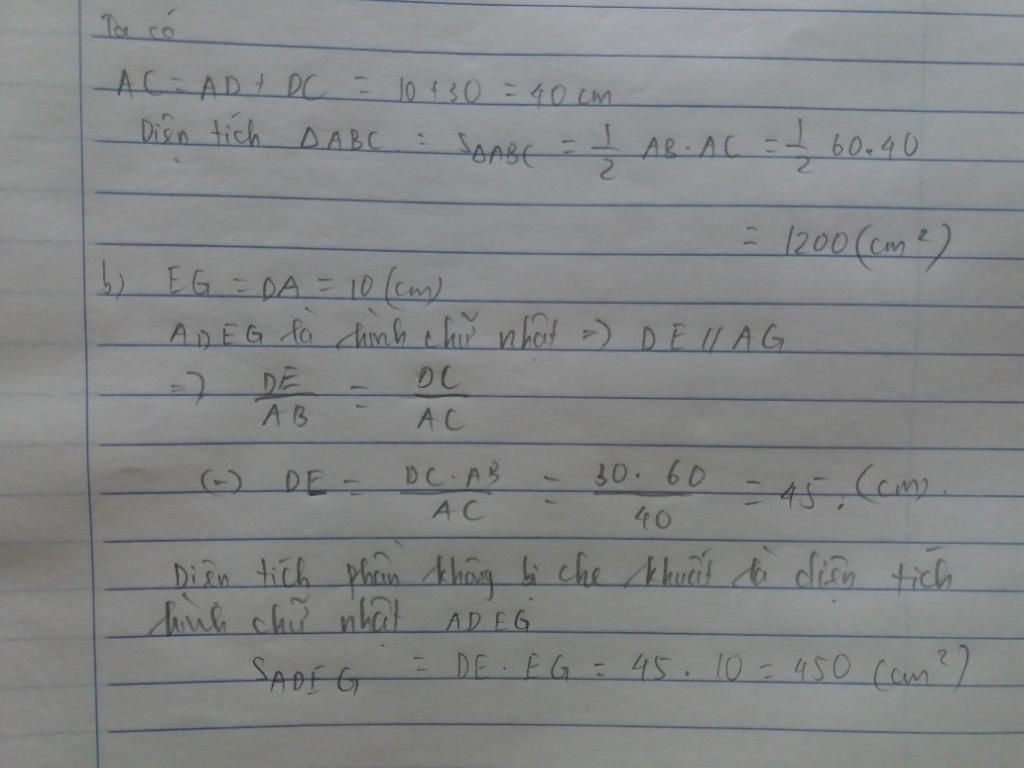 Ta có
AC = AD + DC = 10 + 30 = 40 cm
Diện tích ΔABC : SΔABC = 1/2 AB.AC = 1/2 60.40
= 1200 (cm²)
b) EG = DA = 10 (cm)
ADEG là hình chữ nhật => DE // AG
=> DE/AB = DC/AC
(=) DE = DC.AB/AC = 30.60/40 = 45. (cm).
Diện tích phần không bị che khuất là diện tích
hình chữ nhật ADEG
SADEG = DE.EG = 45.10 = 450 (cm²)